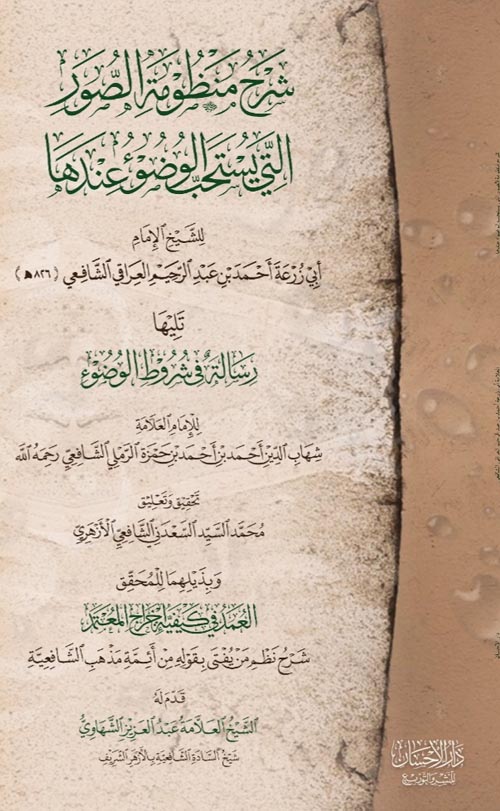 شَرْحُ مَنْظُوْمَةِ الصُّوَرِ
الَّتِي يُسْتَحَبُّ الْوُضُوْءُ عِنْدَهَا
لِلشَّيْخِ الإِمَامِ
أَبِي زُرْعَةَ أَحْمَدَ بْنِ عَبْدِ الرَّحِيْمِ العِرَاقِيِّ الشَّافِعِيِّ ( ٨٢٦ هـ )
تَلِيْهَا
رِسَالَةٌ فِي شُرُوْطِ الْوُضُوْءِ
لِلإِمَامِ العَلَّامَةِ
شِهَابِ الدِّيْنِ أَحْمَدَ بْنِ أَحْمَدَ بْنِ حَمْزَةَ الرَّمْلِيِّ الشَّافِعِيِّ رَحِمَهُ اللَّه
تَحْقِيْق وَتَعْلِيْق
مُحَمَّد السَّيِّد السَّعْدَنِيِّ الشَّافِعِيِّ الأَزْهَرِيِّ
وَبِذَيْلِهِمَا لِلْمُحَقِّقِ
العُمَدُ فِي كَيْفِيَّةِ إِخْرَاجِ المُعْتَمَدِ
شَرْحُ نَظْمِ مَنْ يُفْتَى بِقَوْلِهِ مِنْ أَئِمَّةِ مَذْهَبِ الشَّافِعِيَّةِ
قَدَّمَ لَهُ
الشَّيْخُ العَلَّامَةُ عَبْدُ العَزِيْزِ الشَّهَاوِيُّ
شَيْخُ السَّادَةِ الشَّافِعِيَّةِ بِالأَزْهَرِ الشَّرِيْفِ
دَارُ الإِحْسَان
لِلنَّشْرِ وَالتَّوْزِيْع